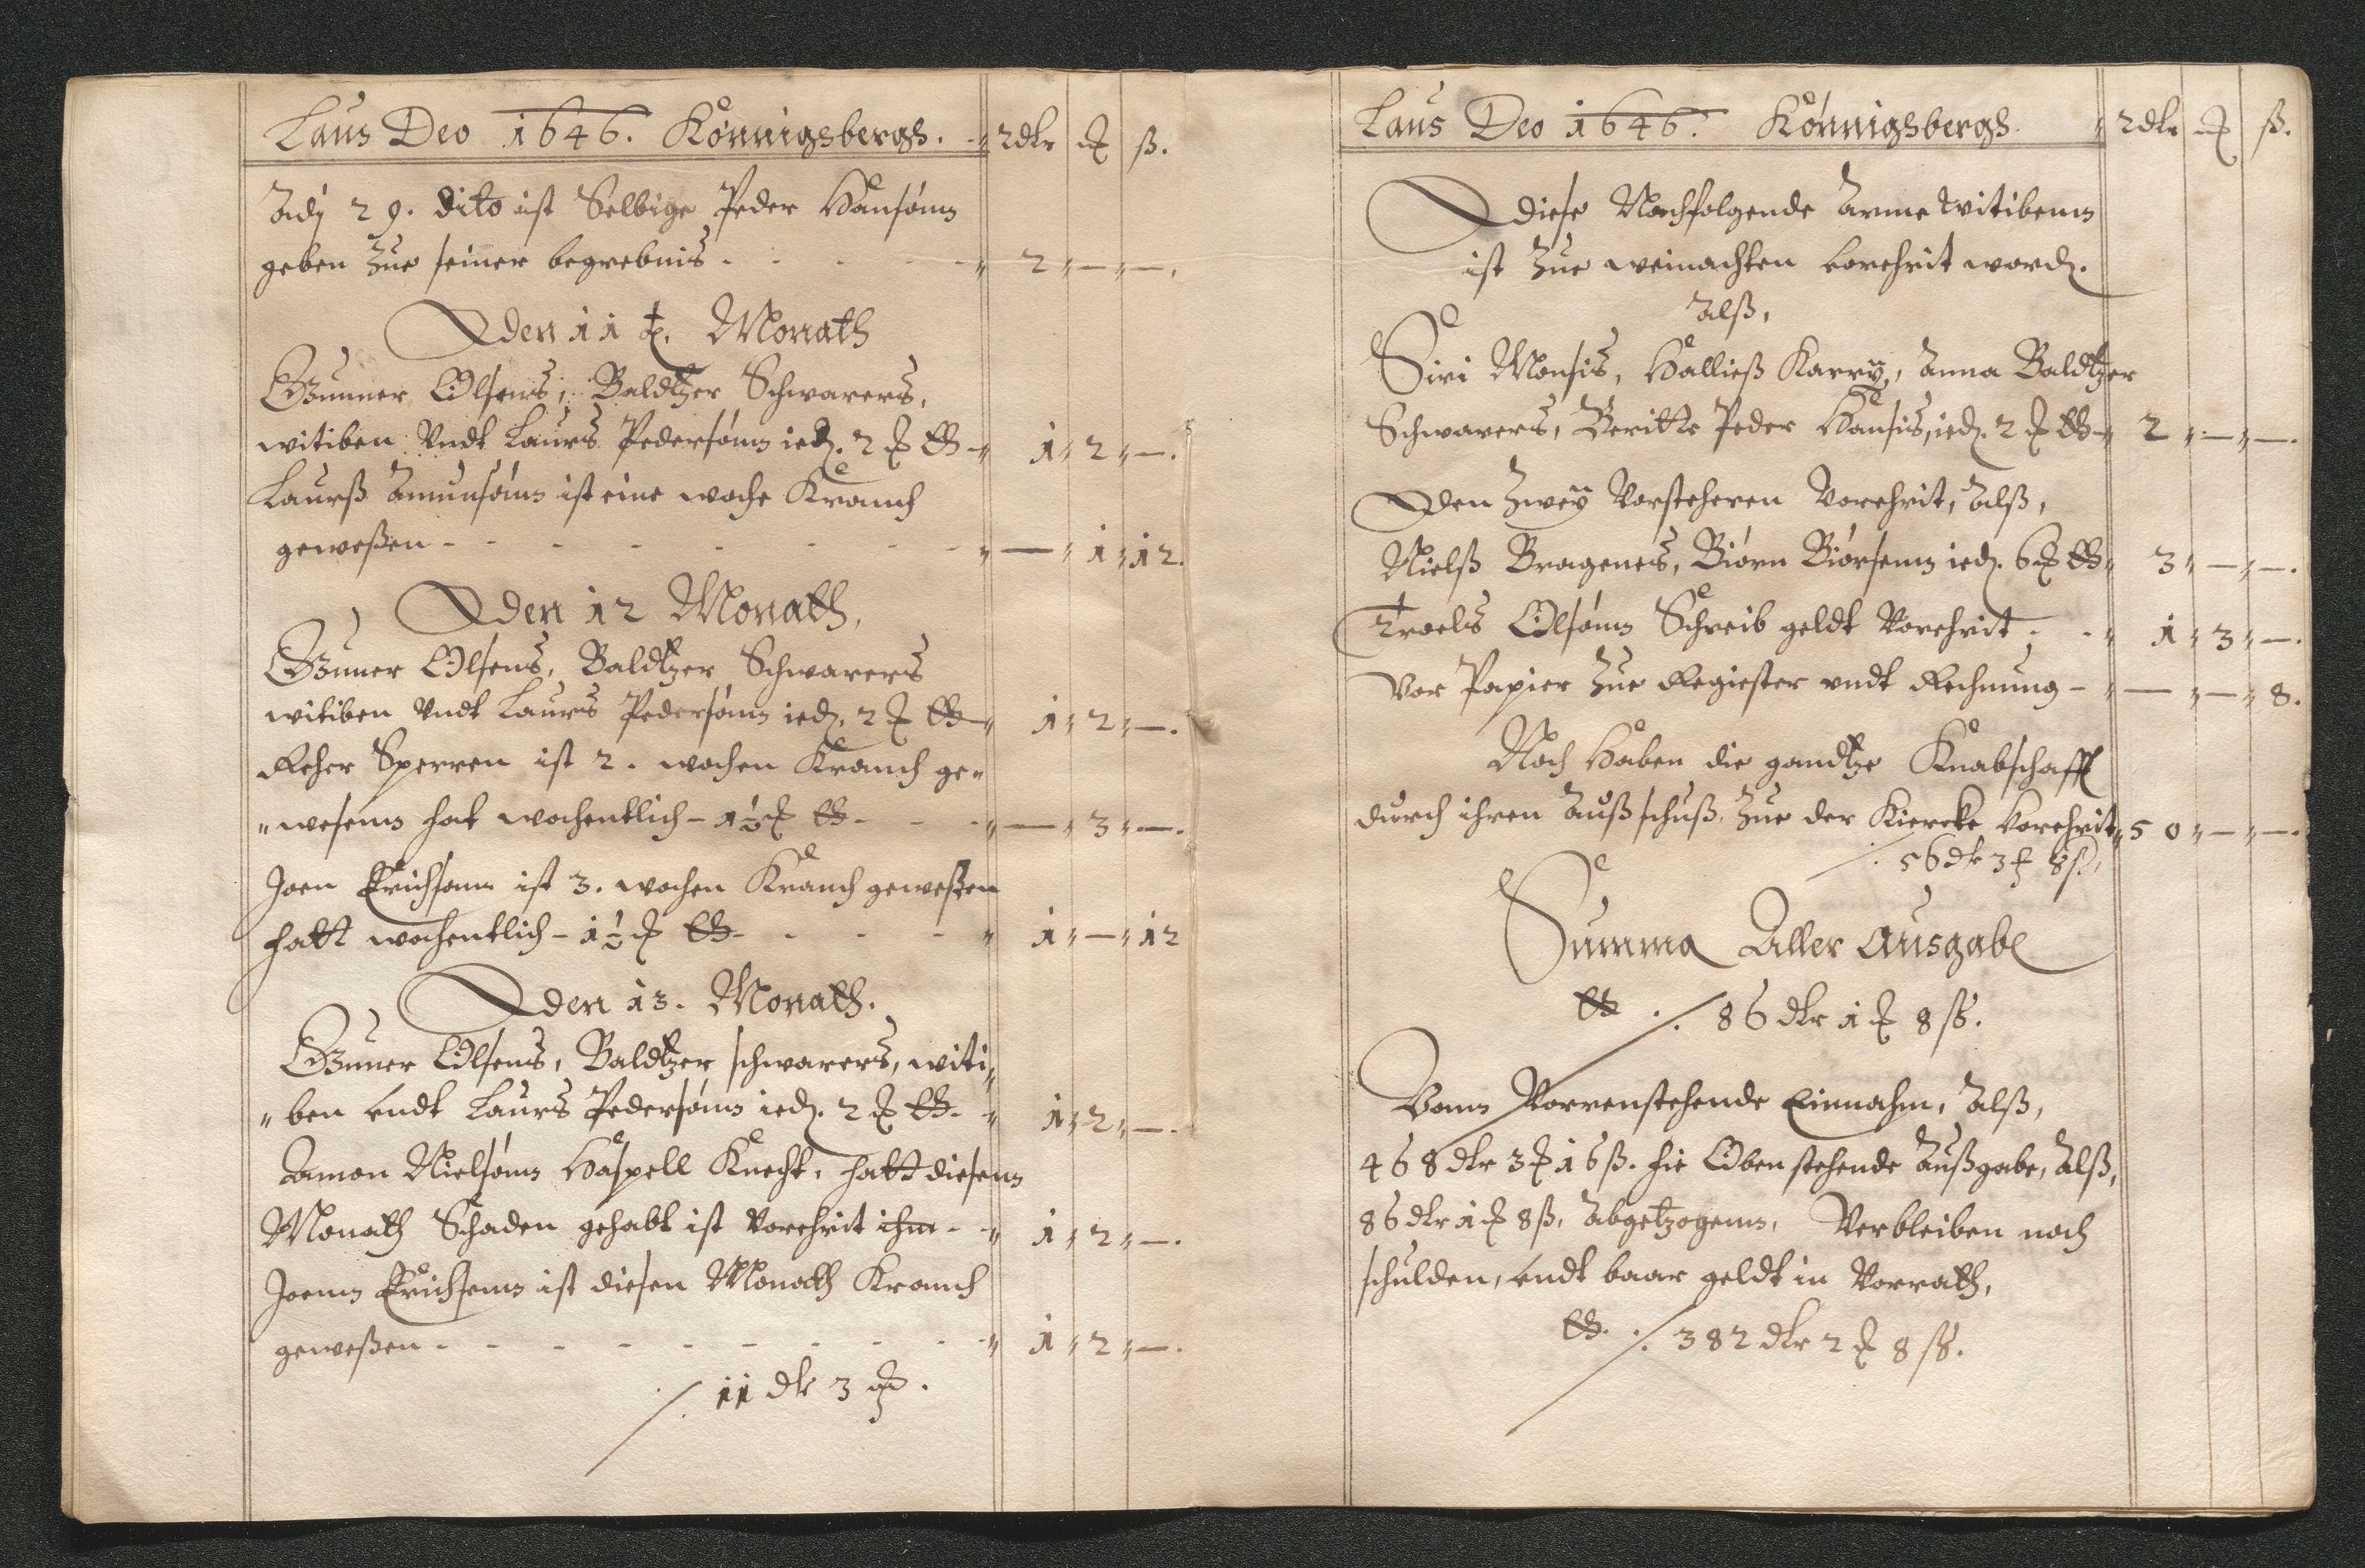 Laus Deo 1646. Könnigsbergh. rdlr ß.
Adj 29. dito ist Selbige Peder Hansönn
geben zue seiner begrebnis - - - - 2 " — " —.
Den 11 t. Monath
Gunner Olsens, Baldtzer Schwarers,
witiben Undt Laurs Pedersönn ied. 2 " 1 " 2 " —.
Laurß Amunsönn ist eine woche Kranch
geweßen - - - - - - - " — " 1 " 12.
Den 12 Monath,
Gunner Olsens, Baldtzer Schwarers
witiben Undt Laurs Pedersönn ied. 2 " 1 " 2 " —.
Sperren ist 2. wochen Kranch ge"
"wesenn hat wochentlich - 1½ - - - " — " 3 " —.
Joen Erichsonn ist 3. wochen Kranch geweßen
hatt wochentlich - 1½ - - - - " 1 " — " 12
Den 13. Monath.
Gunner Olsens, Baldtzer schwarers, witi"
"ben undt Laurs Pedersönn ied. 2 - " 1 " 2 " —.
Amon Nielsönn Haspell Knecht, hatt diesenn
Monath Schaden gehabt ist Vorehrit ihm - " 1 " 2 " —.
Joenn Erichsenn ist diesen Monath Kranch
geweßen - - - - - - - - - " 1 " 2 " —.
11 dlr 3 .
Laus Deo 1646. Könnigsbergh. " rdlr ß.
Diese Nachfolgende Arme Witibenn
ist zue weinachten vorehrit word.
Alß,
Siri Monsis, Halließ Karry, Anna Baldtzer
Schwarers, Beritte Peder Hansis, ied. 2 " 2 " — " —.
Den Zwey Vorsteheren Vorehrit, Alß,
Nielß Bragenes, Biörn Biörsenn ied. 6 " 3 " — " —.
Troels Olsönn Schreib geldt Vorehrit - - " 1 " 3 " —.
Vor Papier zue Regiester undt Rechnung - " — " — " 8.
Noch Haben die gandtze Knabschafft
durch ihren Außschuß, zue der Kiercke Vorehrit " 50 " — " —.
56 dlr 3 8 ß.
Summa Aller Ausgabe
86 dlr 1 8 ß.
Vonn Vorrenstehende Einnahm, Alß,
468 dlr 3 16 ß. hie Oben stehende Außgabe, Alß,
86 dlr 1 8 ß, Abgetzogenn, Verbleiben noch
schulden, undt baar geldt in Vorrath,
382 dlr 2 8 ß.